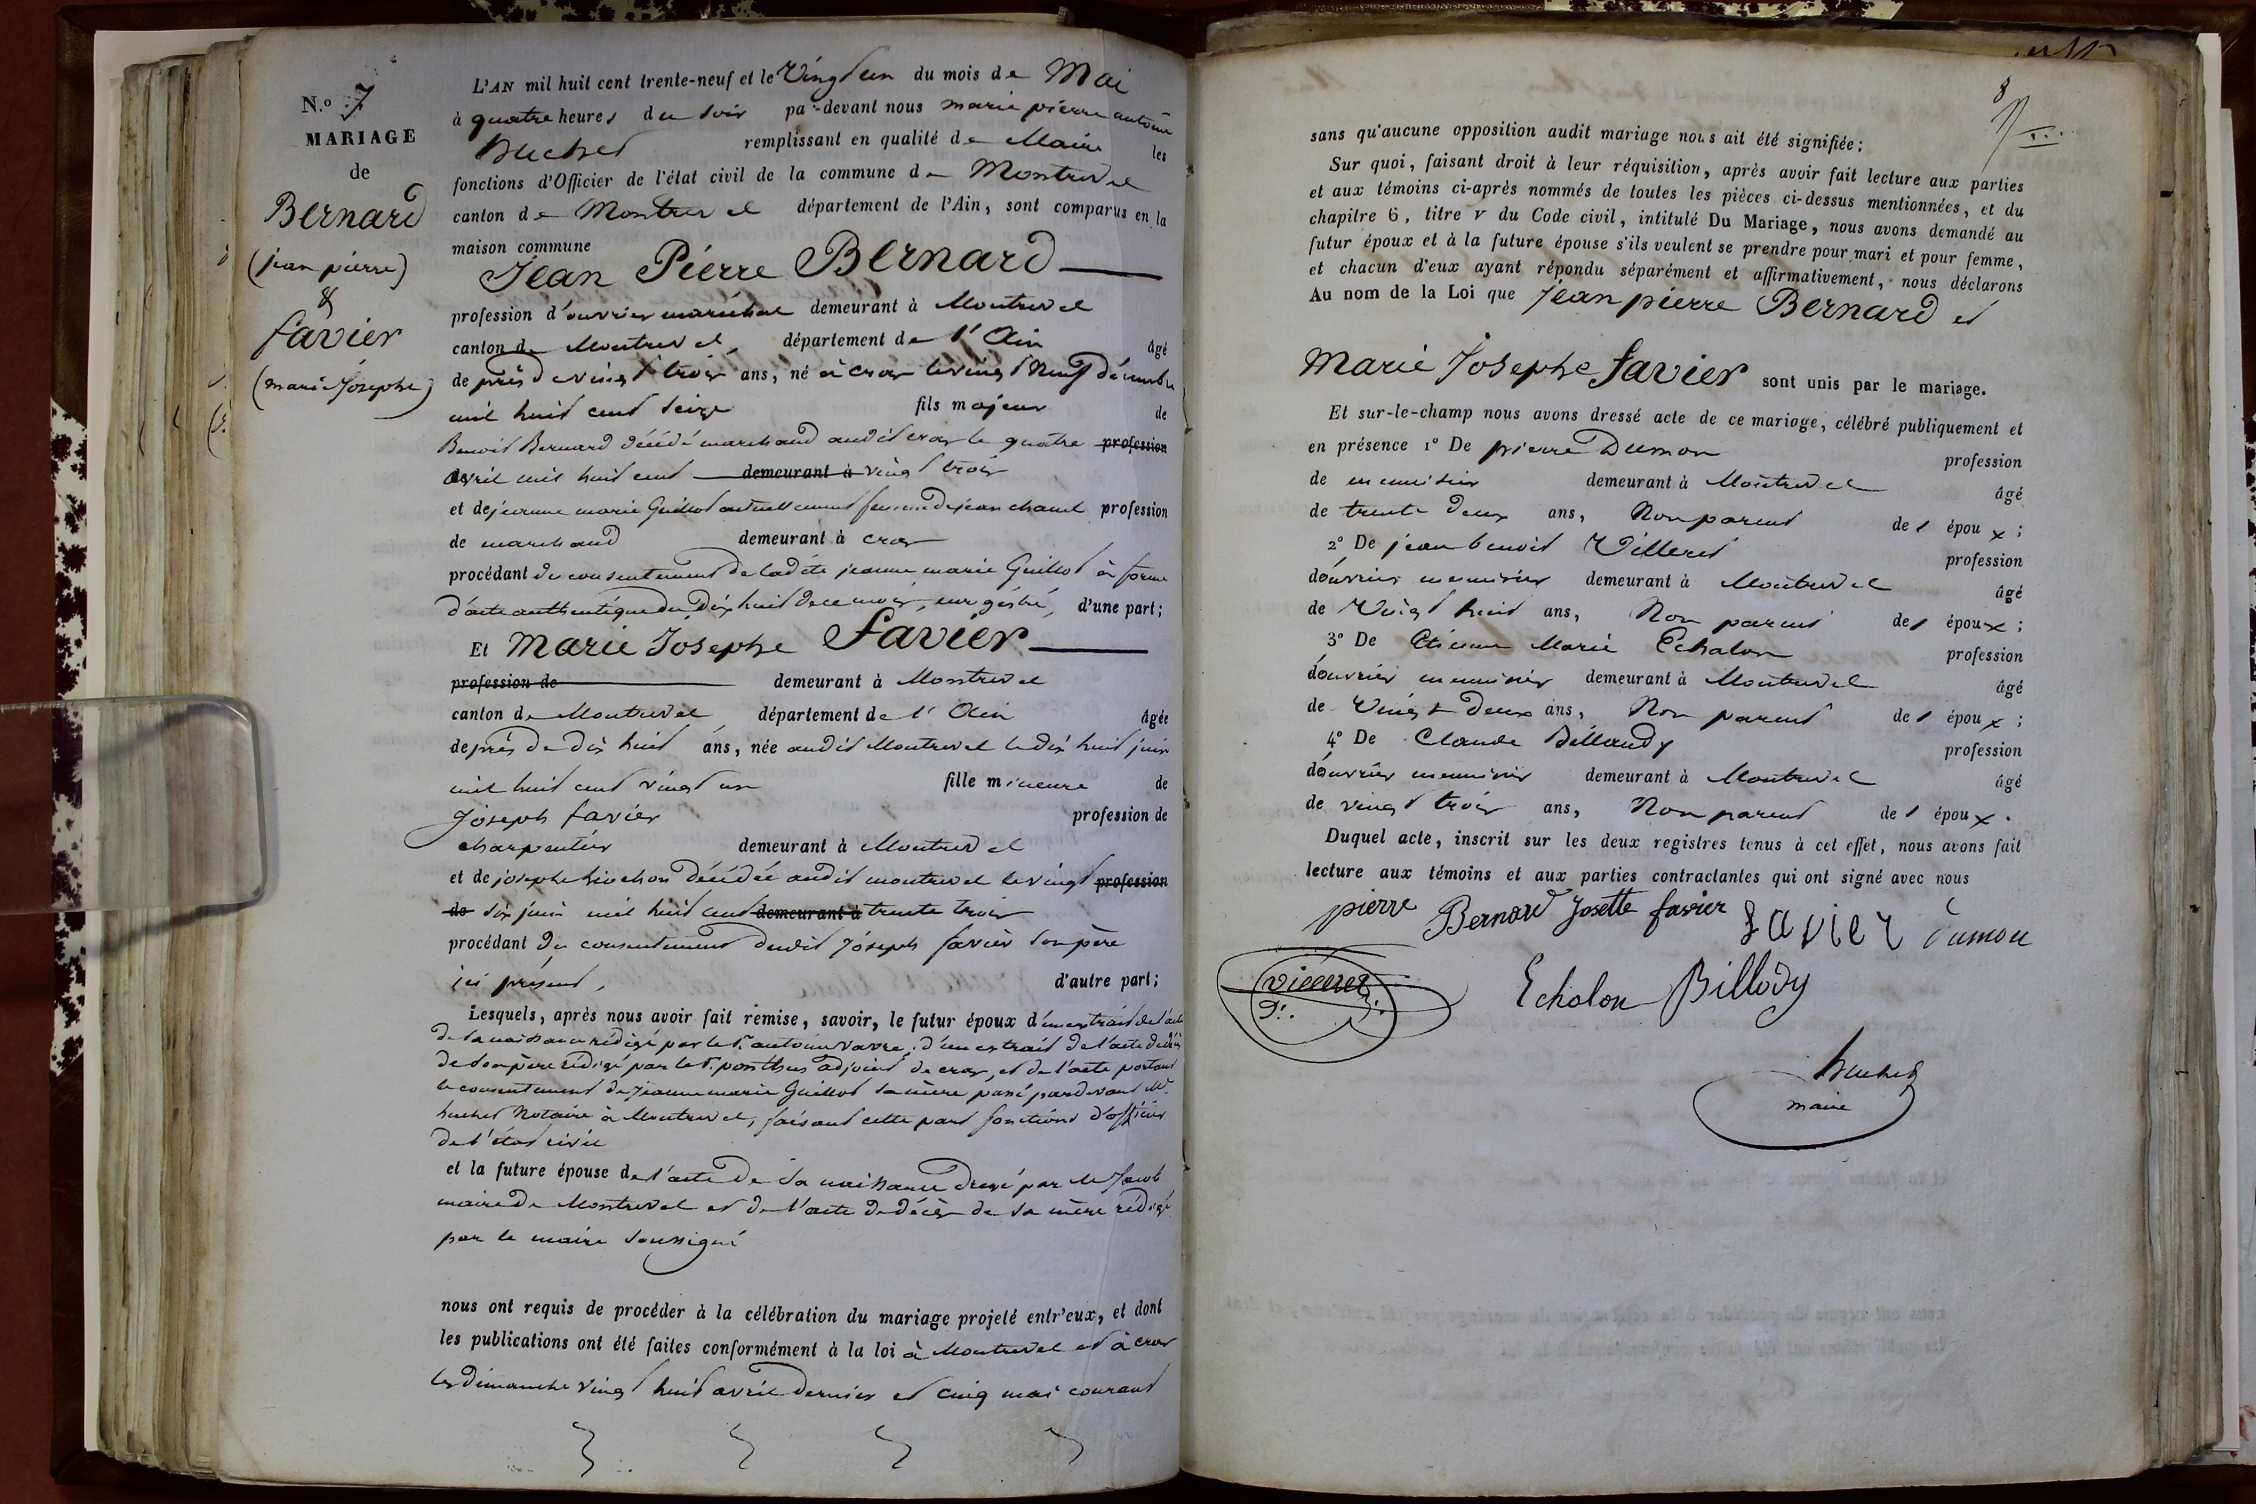 N.o 7
MARIAGE
de
Bernard
(jean pierre)
&
favier
(marie Josephe)
L'AN mil huit cent trente-neuf et le vingt un du mois de Mai
à quatre heures du soir par-devant nous marie pierre antoine
huchet remplissant en qualité de Maire les
fonctions d'Officier de l'état civil de la commune de Montrevel
canton de Montrevel département de l'Ain, sont comparus en la
maison commune
Jean Pierre Bernard
profession d'ouvrier maréchal demeurant à Montrevel
canton de Montrevel, département de l'Ain âgé
de près de vingt trois ans, né à cras le vingt neuf décembre
mil huit cent seize fils majeur de
Benoit Bernard décédé marchand audit cras le quatre profession
de avril mil huit cent demeurant à vingt trois
et de jeanne marie Guillot actuellement femme de jean chanel profession
de marchand demeurant à cras
procédant du consentement de ladite jeanne marie Guillot à forme
d'acte authentique du dix huit de ce mois, enregistré, d'une part;
Et Marie Josephe favier
profession de demeurant à Montrevel
canton de Montrevel, département de l'Ain âgée
de près de dix huit ans, née audit Montrevel le dix huit juin
mil huit cent vingt un fille mineure de
Joseph favier profession de
charpentier demeurant à Montrevel
et de josephe décédée audit montrevel le vingt profession
de six juin mil huit cent demeurant à trente trois
procédant du consentement dudit Joseph favier son père
ici présent, d'autre part;
Lesquels, après nous avoir fait remise, savoir, le futur époux d'un extrait de l'acte
de sa naissance rédigé par le Sr. antoine vavre, d'un extrait de l'acte de décès
de son père rédigé par le Sr. ponthus adjoint de cras, et de l'acte portant
le consentement de jeanne marie Guillot sa mère passé pardevant Me
huchet Notaire à Montrevel, faisant cette part fonctions d'officier
de l'état civil
et la future épouse de l'acte de sa naissance dressé par Mr Jacob
maire de Montrevel et de l'acte de décès de sa mère rédigé
par le maire soussigné
nous ont requis de procéder à la célébration du mariage projeté entr'eux, et dont
les publications ont été faites conformément à la loi à Montrevel et à cras
les dimanche vingt huit avril dernier et cinq mai courant
8
sans qu'aucune opposition audit mariage nous ait été signifiée;
Sur quoi, faisant droit à leur réquisition, après avoir fait lecture aux parties
et aux témoins ci-après nommés de toutes les pièces ci-dessus mentionnées, et du
chapitre 6, titre v du Code civil, intitulé Du Mariage, nous avons demandé au
futur époux et à la future épouse s'ils veulent se prendre pour mari et pour femme,
et chacun d'eux ayant répondu séparément et affirmativement, nous déclarons
Au nom de la Loi que Jean pierre Bernard et
Marie Josephe favier sont unis par le mariage.
Et sur-le-champ nous avons dressé acte de ce mariage, célébré publiquement et
en présence 1o De pierre Dumon profession
de menuisier demeurant à Montrevel âgé
de trente deux ans, Non parent des époux;
2o De jean benoit Villeret profession
d'ouvrier menuisier demeurant à Montrevel âgé
de Vingt huit ans, Non parent des époux;
3o De Etienne Marie Echalon profession
d'ouvrier menuisier demeurant à Montrevel âgé
de Vingt deux ans, Non parent des époux;
4o De Claude Billaudy profession
d'ouvrier menuisier demeurant à Montrevel âgé
de vingt trois ans, Non parent des époux.
Duquel acte, inscrit sur les deux registres tenus à cet effet, nous avons fait
lecture aux témoins et aux parties contractantes qui ont signé avec nous
pierre Bernard Josette favier favier dumon
villeret Echalon Billody
huchet
maire